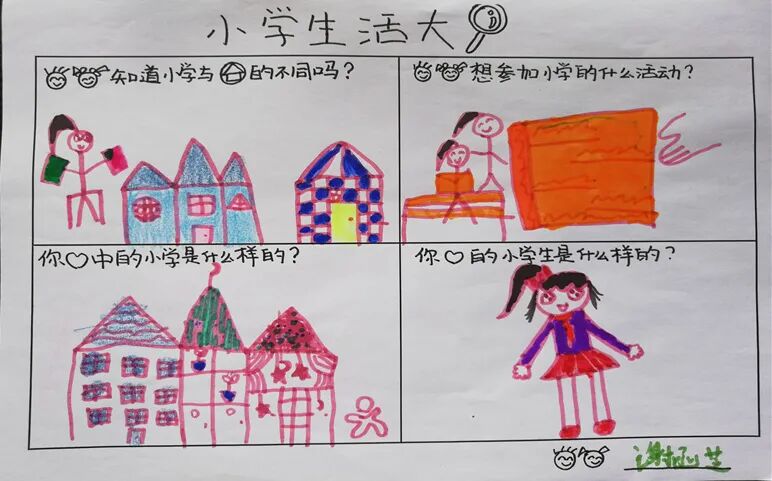 小学生活大
知道小学与的不同吗？
想参加小学的什么活动？
你中的小学是什么样的？
你的小学生是什么样的？